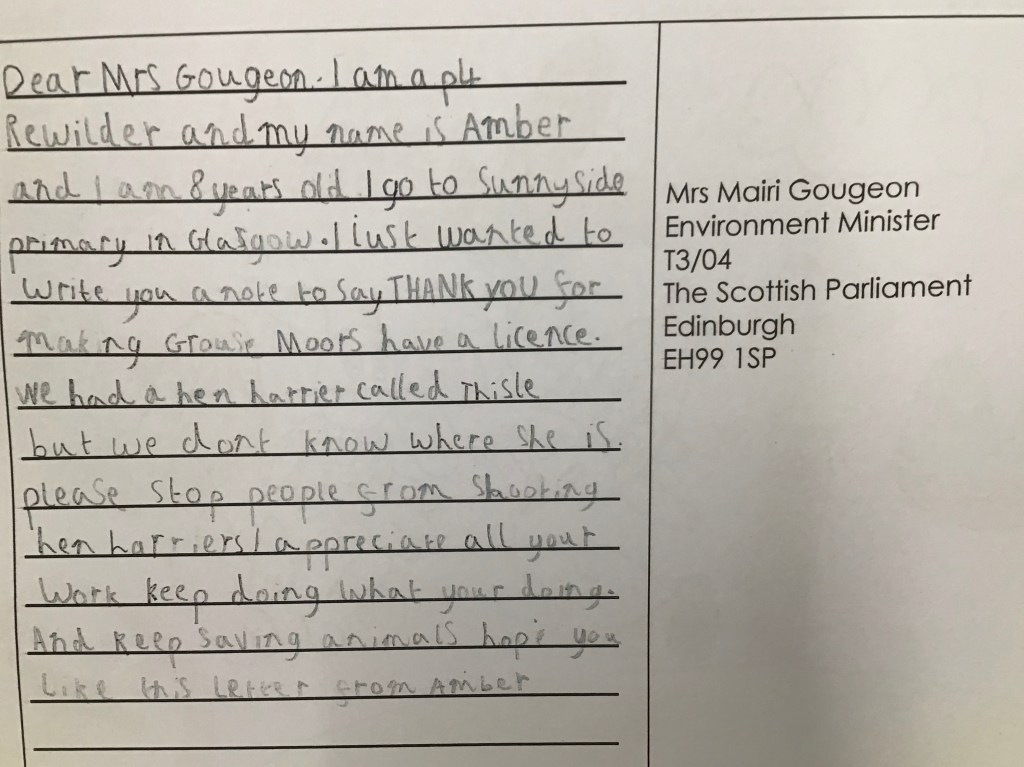 Dear Mrs Gougeon. I am a p4
Rewilder and my name is Amber
and I am 8 years old. I go to Sunnyside
primary in Glasgow. I iust wanted to
Write you a note to say THANK YOU for
making Grouse Moors have a licence.
we had a hen harrier called Thisle
but we dont know where she is.
please stop people from shooting
hen harriers I appreciate all your
work keep doing what your doing.
And keep saving animals hope you
like this letter from Amber
Mrs Mairi Gougeon
Environment Minister
T3/04
The Scottish Parliament
Edinburgh
EH99 1SP